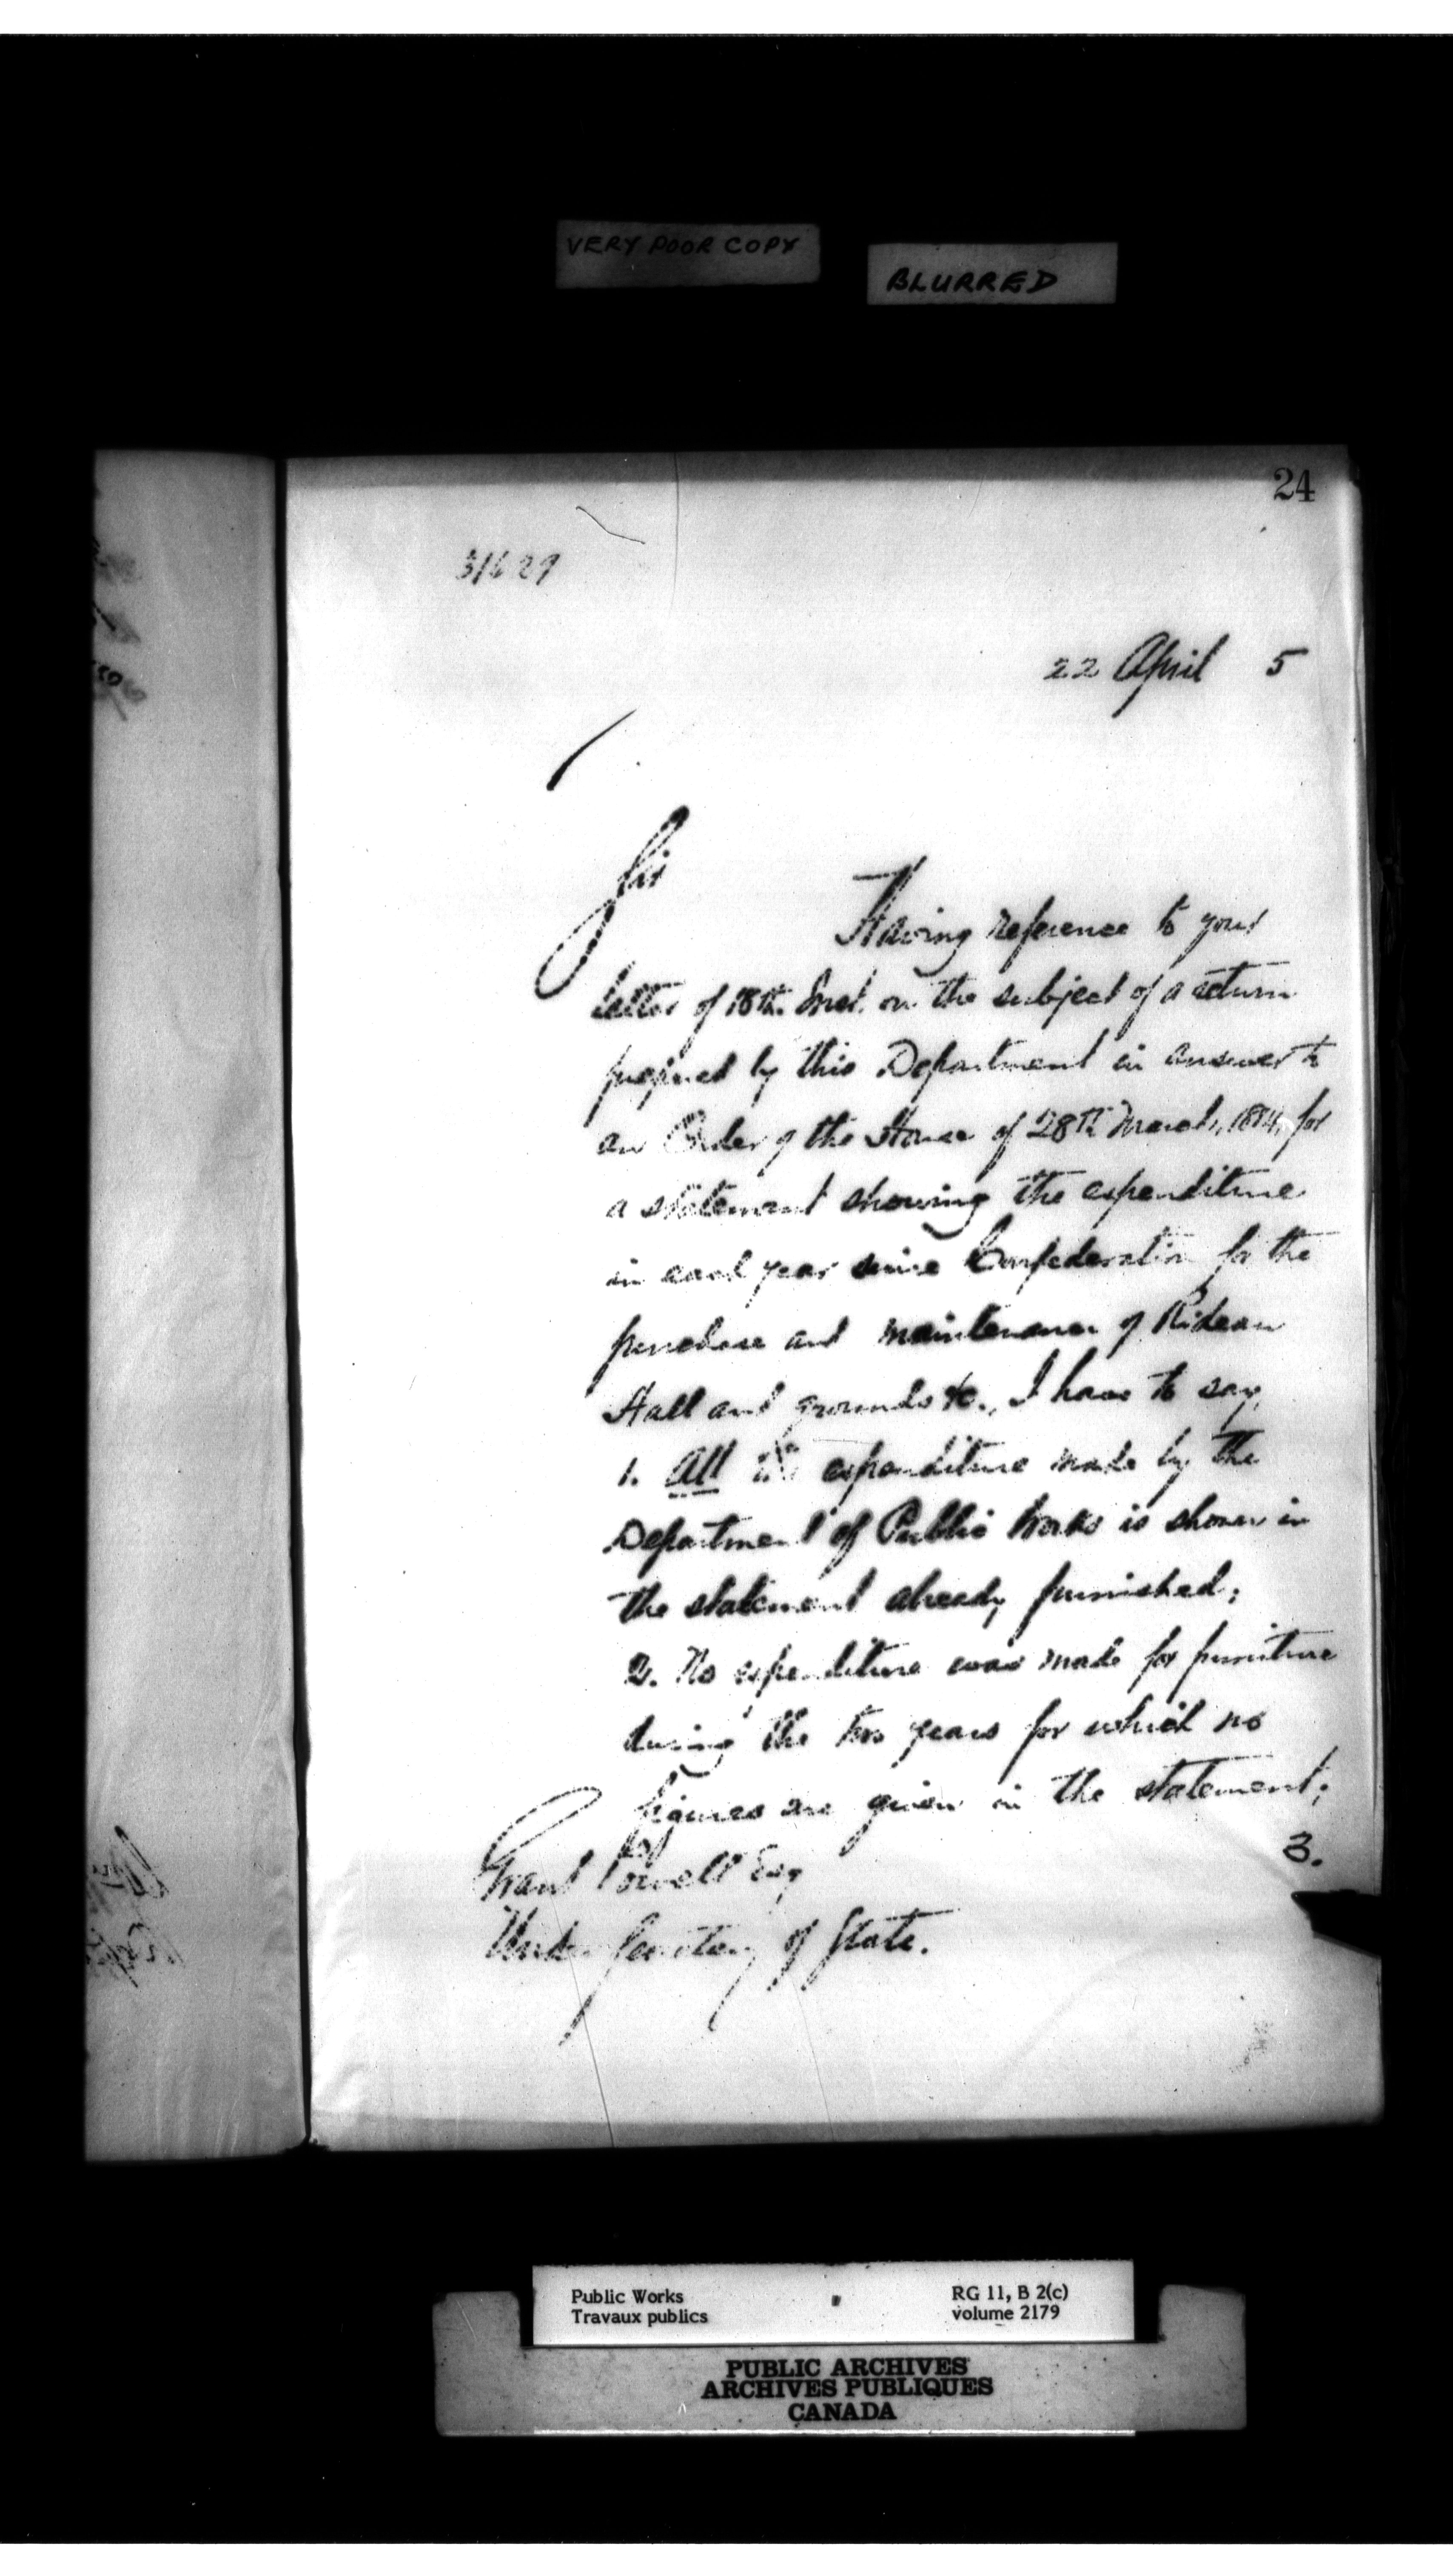 VERY POOR COPY
BLURRED
24
31629
22 April 5
Sir
Having reference to your
letter of 18th. Inst. on the subject of a return
prepared by this Department in answer to
an Order of the House of 28th March, 1884, for
a statement showing the expenditure
in each year since Confederation for the
purchase and maintenance of Rideau
Hall and grounds &c., I have to say,
1. All the expenditure made by the
Department of Public Works is shown in
the statement already furnished;
2. No expenditure was made for furniture
during the two years for which no
figures are given in the statement;
3.
Grant Powell Esq
Under Secretary of State.
Public Works
Travaux publics
RG 11, B 2(c)
volume 2179
PUBLIC ARCHIVES
ARCHIVES PUBLIQUES
CANADA